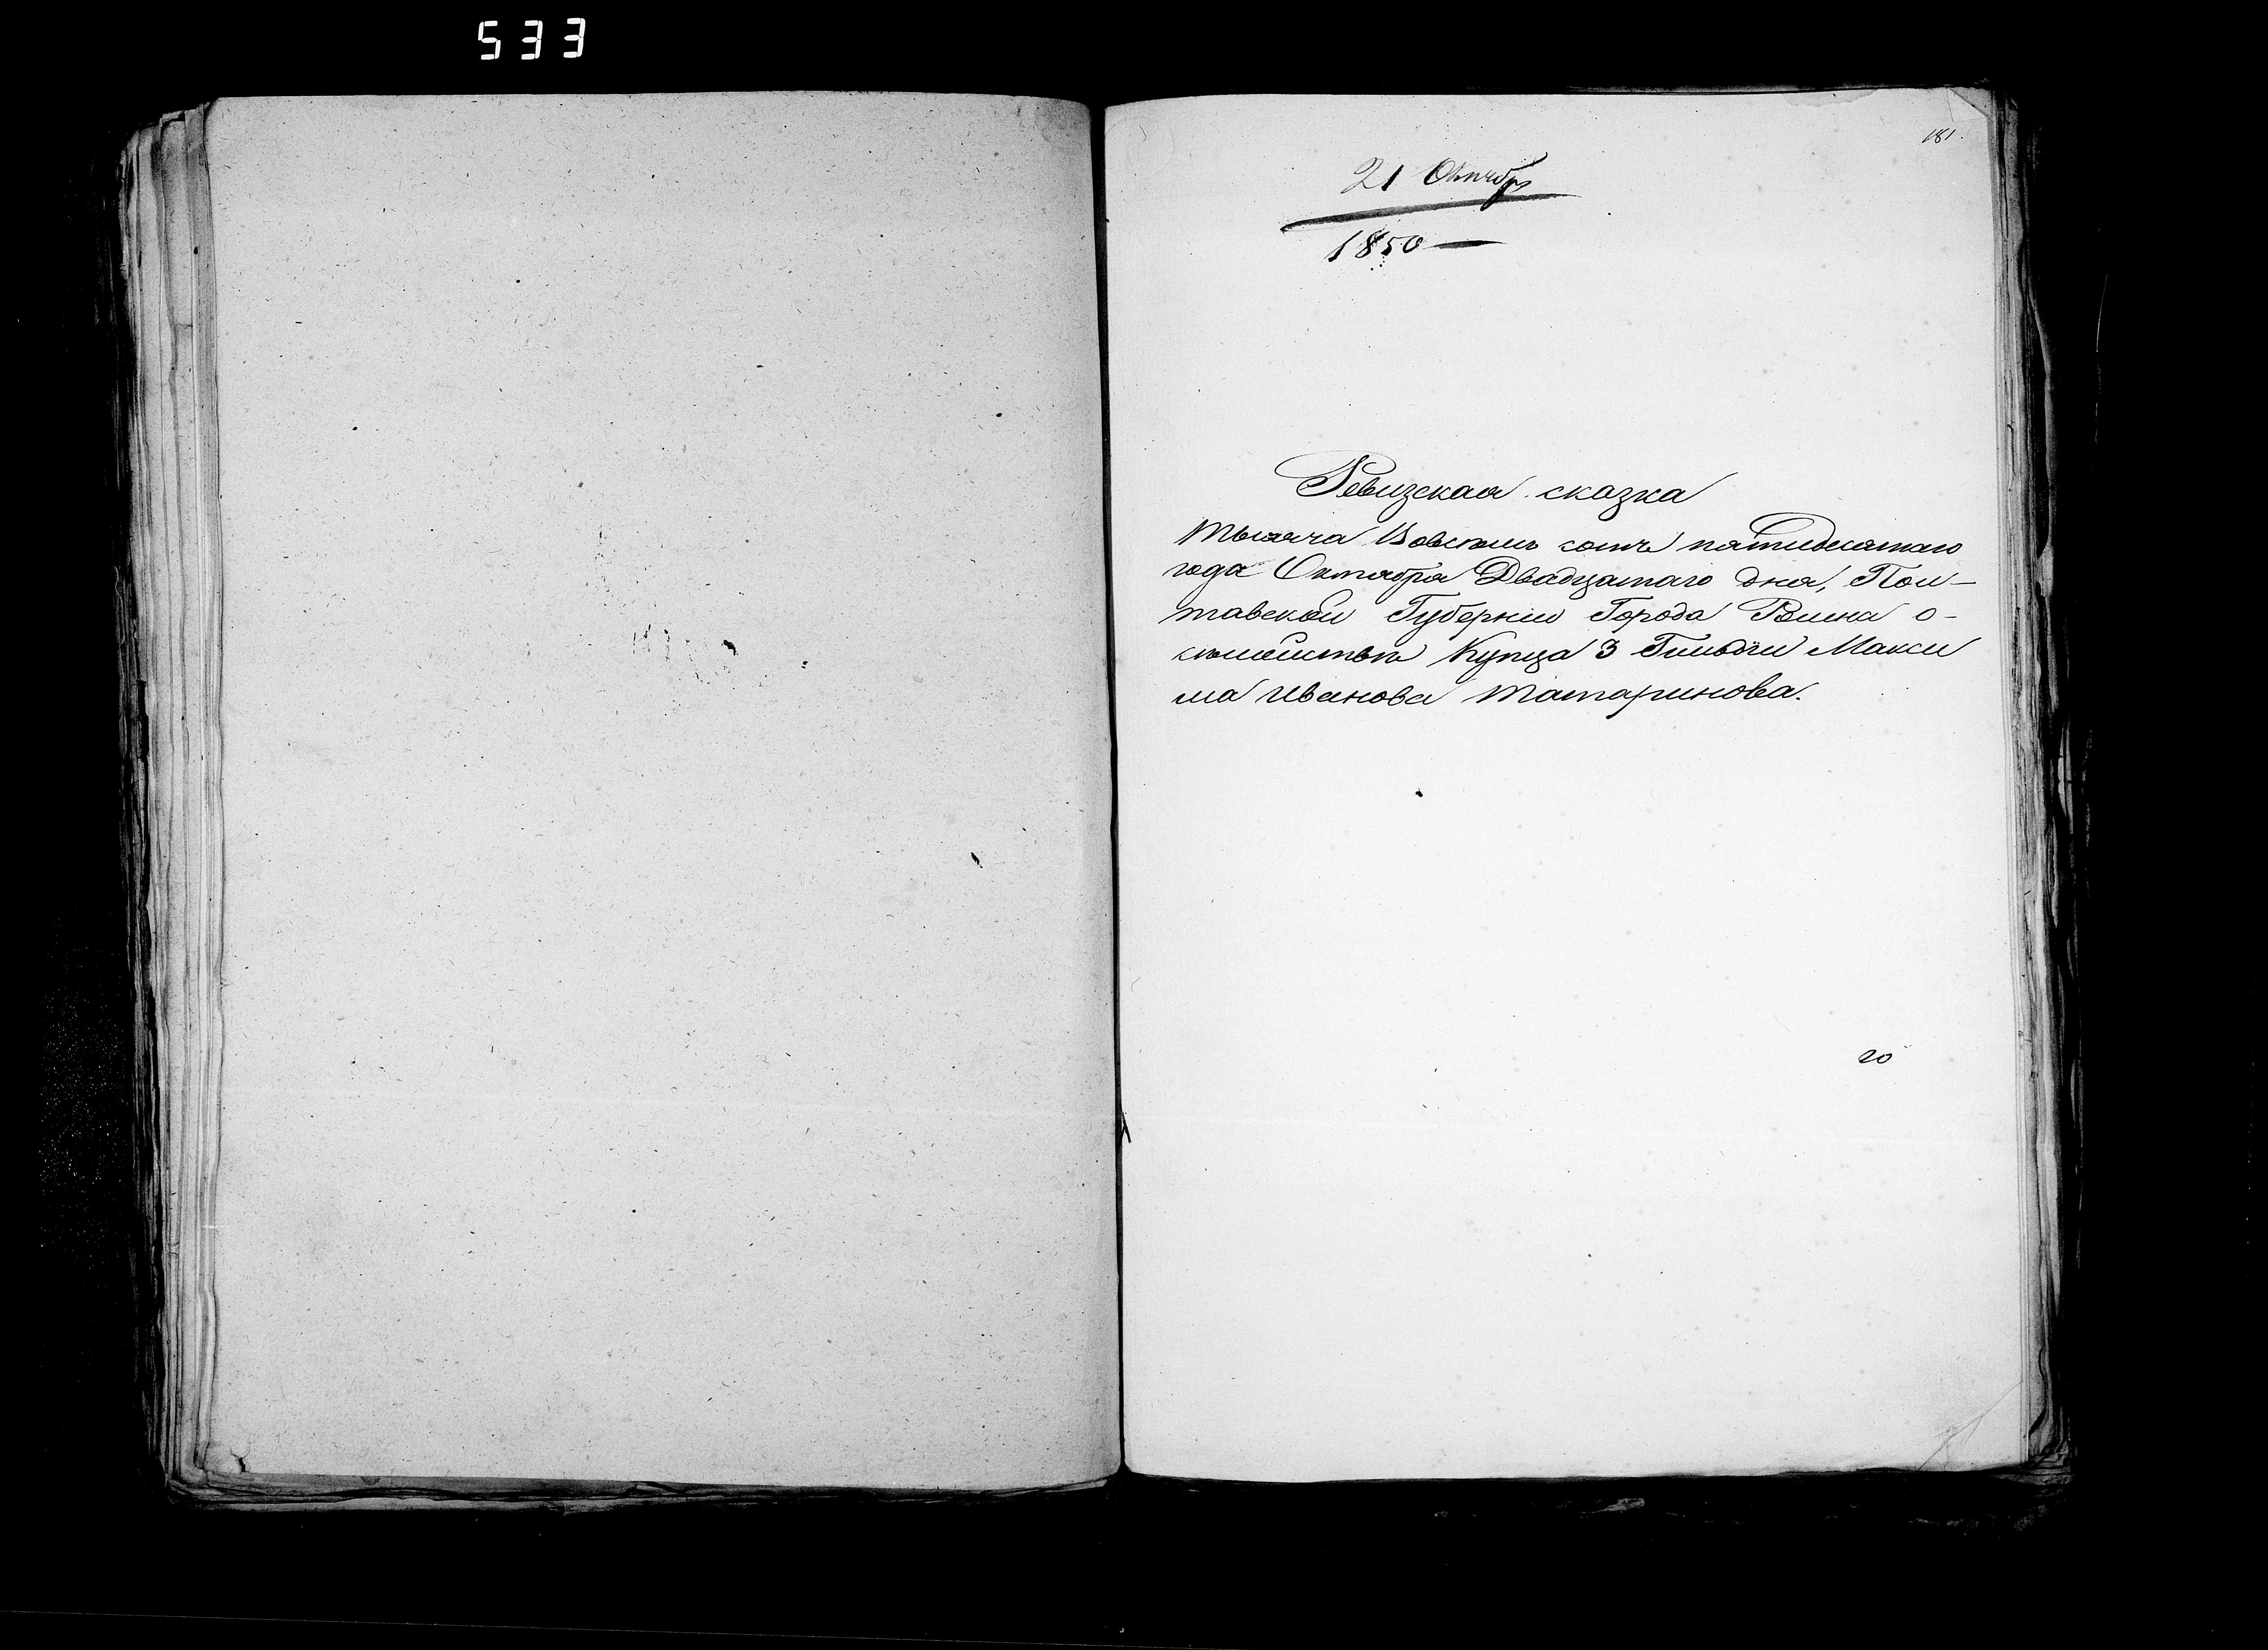 533
181.
21 Октябр
1850 —
Ревизская сказка
тысяча восемь сотъ пятидесятаго
года Октября Двадцатаго дня, Пол-
тавской Губернии Города Ромна о-
семействе Купца 3 Гильдии Макси
ма Иванова Татаринова.